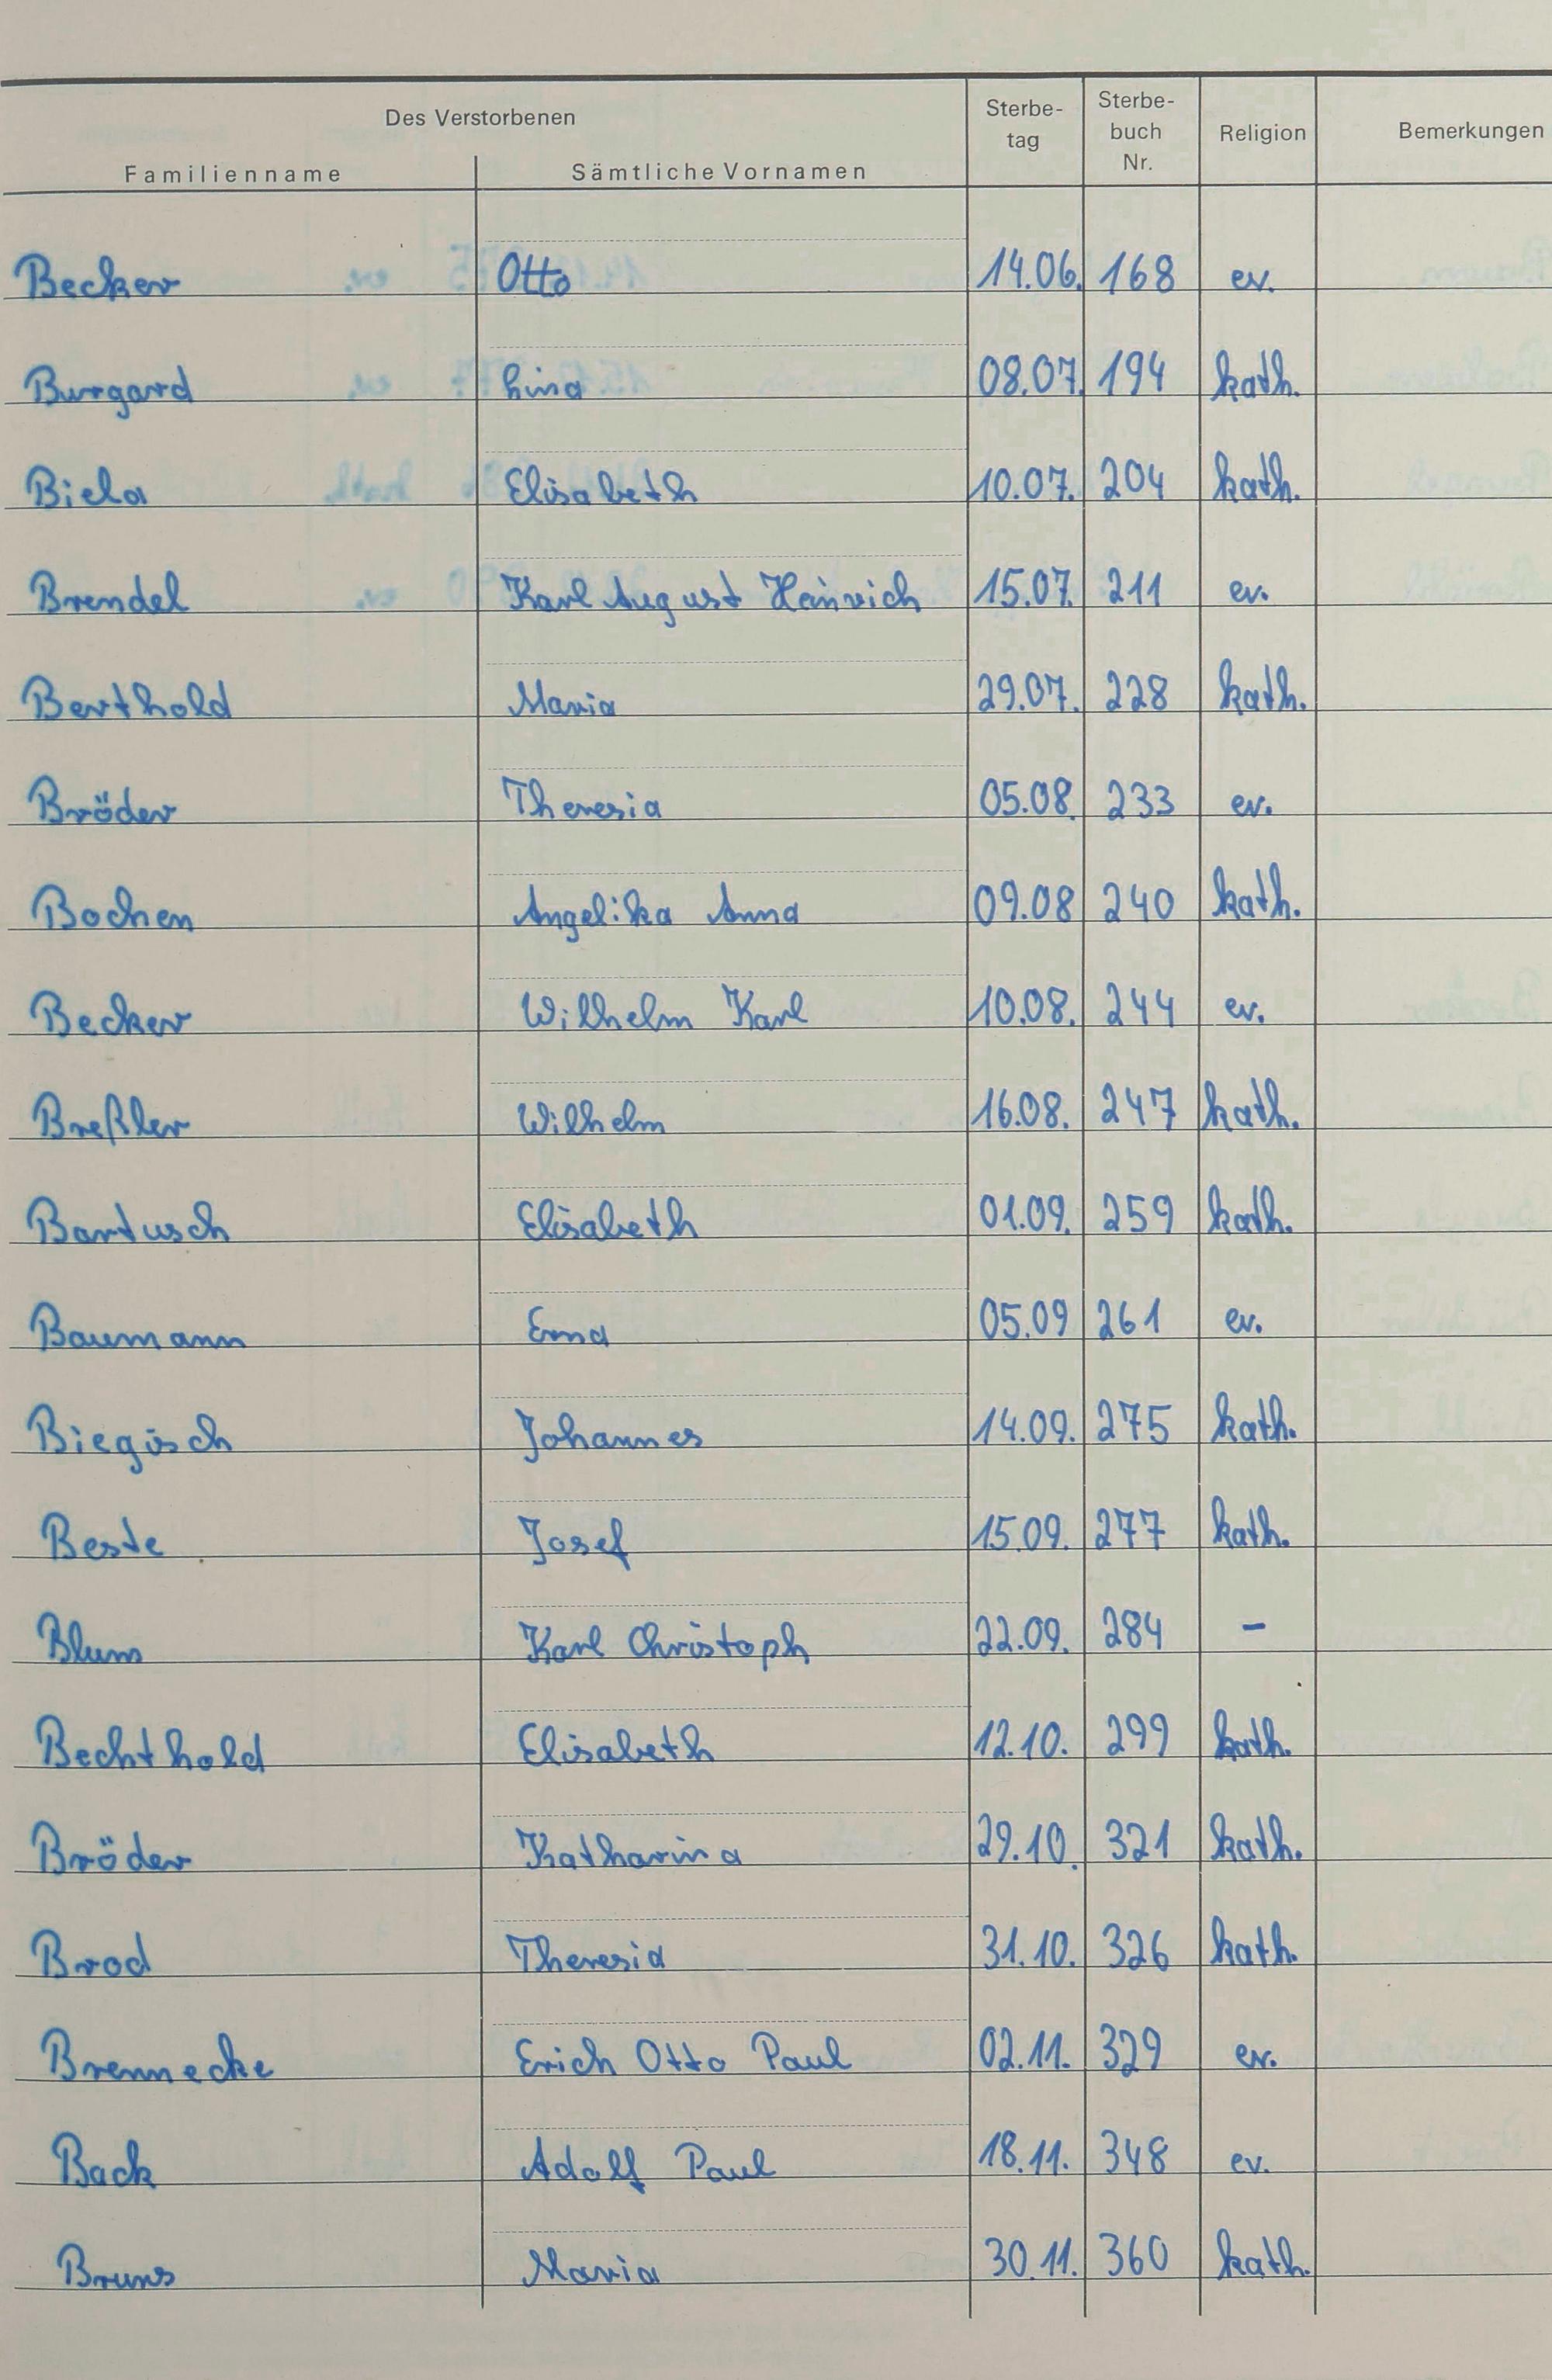 Des Verstorbenen
Familienname Sämtliche Vornamen Sterbe-tag Sterbe-buch Nr. Religion Bemerkungen
Becker Otto 14.06. 168 ev.
Burgard Lina 08.07. 194 kath.
Biela Elisabeth 10.07. 204 kath.
Brendel Karl August Heinrich 15.07. 211 ev.
Berthold Maria 29.07. 228 kath.
Bröder Theresia 05.08. 233 ev.
Bochen Angelika Anna 09.08 240 kath.
Becker Wilhelm Karl 10.08. 244 ev.
Breßler Wilhelm 16.08. 247 kath.
Bartusch Elisabeth 01.09. 259 kath.
Baumann Erna 05.09 261 ev.
Biegisch Johannes 14.09. 275 kath.
Beste Josef 15.09. 277 kath.
Blum Karl Christoph 22.09. 284 –
Bechthold Elisabeth 12.10. 299 kath.
Bröder Katharina 29.10. 321 kath.
Brod Theresia 31.10. 326 kath.
Brennecke Erich Otto Paul 02.11. 329 ev.
Back Adolf Paul 18.11. 348 ev.
Bruns Maria 30.11. 360 kath.